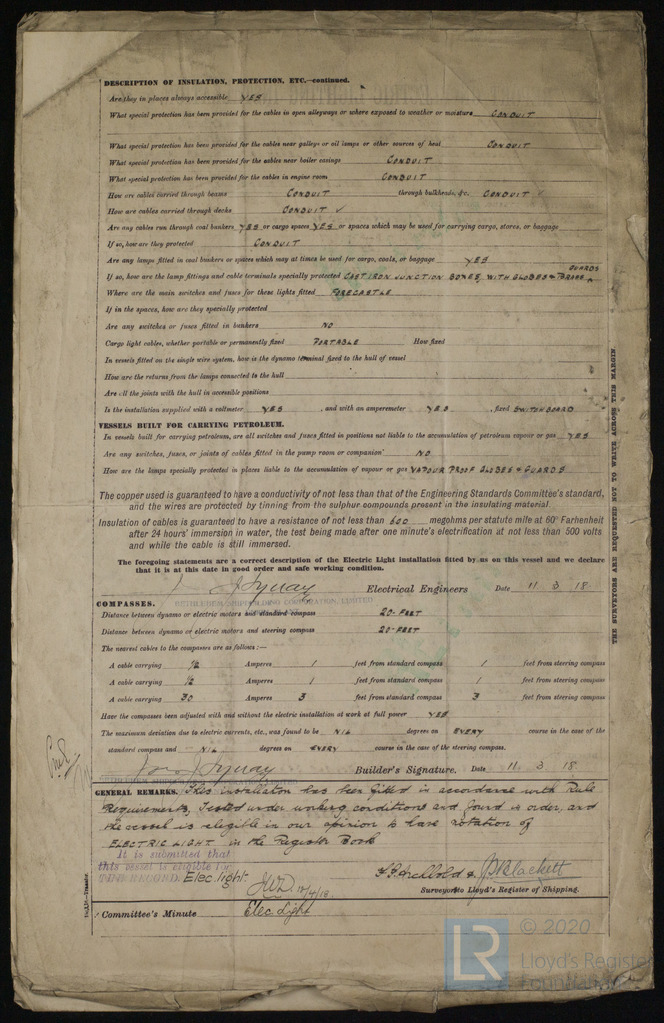 DESCRIPTION OF INSULATION, PROTECTION, ETC.—continued.
Are they in places always accessible YES
What special protection has been provided for the cables in open alleyways or where exposed to weather or moisture CONDUIT
What special protection has been provided for the cables near galleys or oil lamps or other sources of heat CONDUIT
What special protection has been provided for the cables near boiler casings CONDUIT
What special protection has been provided for the cables in engine room CONDUIT
How are cables carried through beams CONDUIT through bulkheads, &c. CONDUIT ✓
How are cables carried through decks CONDUIT ✓
Are any cables run through coal bunkers YES or cargo spaces YES or spaces which may be used for carrying cargo, stores, or baggage
If so, how are they protected CONDUIT
Are any lamps fitted in coal bunkers or spaces which may at times be used for cargo, coals, or baggage YES
If so, how are the lamp fittings and cable terminals specially protected CAST IRON JUNCTION BOXES, WITH GLOBES & BRASS GUARDS
Where are the main switches and fuses for these lights fitted FORECASTLE
If in the spaces, how are they specially protected
Are any switches or fuses fitted in bunkers NO
Cargo light cables, whether portable or permanently fixed PORTABLE How fixed
In vessels fitted on the single wire system, how is the dynamo terminal fixed to the hull of vessel
How are the returns from the lamps connected to the hull
Are all the joints with the hull in accessible positions
Is the installation supplied with a voltmeter YES , and with an amperemeter YES , fixed SWITCHBOARD
VESSELS BUILT FOR CARRYING PETROLEUM.
In vessels built for carrying petroleum, are all switches and fuses fitted in positions not liable to the accumulation of petroleum vapour or gas YES
Are any switches, fuses, or joints of cables fitted in the pump room or companion NO
How are the lamps specially protected in places liable to the accumulation of vapour or gas VAPOUR PROOF GLOBES & GUARDS
The copper used is guaranteed to have a conductivity of not less than that of the Engineering Standards Committee's standard,
and the wires are protected by tinning from the sulphur compounds present in the insulating material.
Insulation of cables is guaranteed to have a resistance of not less than 600 megohms per statute mile at 60° Farhenheit
after 24 hours' immersion in water, the test being made after one minute's electrification at not less than 500 volts
and while the cable is still immersed.
The foregoing statements are a correct description of the Electric Light installation fitted by us on this vessel and we declare
that it is at this date in good order and safe working condition.
Electrical Engineers Date 11 3 18
BETHLEHEM SHIPBUILDING CORPORATION, LIMITED
COMPASSES.
Distance between dynamo or electric motors and standard compass 20-FEET
Distance between dynamo or electric motors and steering compass 20-FEET
The nearest cables to the compasses are as follows:—
A cable carrying 1/2 Amperes 1 feet from standard compass 1 feet from steering compass
A cable carrying 1/2 Amperes 1 feet from standard compass 1 feet from steering compass
A cable carrying 30 Amperes 3 feet from standard compass 3 feet from steering compass
Have the compasses been adjusted with and without the electric installation at work at full power YES
The maximum deviation due to electric currents, etc., was found to be NIL degrees on EVERY course in the case of the
standard compass and NIL degrees on EVERY course in the case of the steering compass.
Builder's Signature. Date 11 3 18
BETHLEHEM SHIPBUILDING CORPORATION LIMITED
GENERAL REMARKS. This installation has been fitted in accordance with Rule
Requirements, Tested under working conditions and found in order, and
the vessel is eligible in our opinion to have notation of
ELECTRIC LIGHT in the Register Book
It is submitted that
this vessel is eligible for
THE RECORD. Elec. light.
JWD 10/4/18
F. Archbold & J. Blackett
Surveyors to Lloyd's Register of Shipping.
Committee's Minute Elec. Light
THE SURVEYORS ARE REQUESTED NOT TO WRITE ACROSS THIS MARGIN.
LR © 2020
Lloyd's Register
Foundation